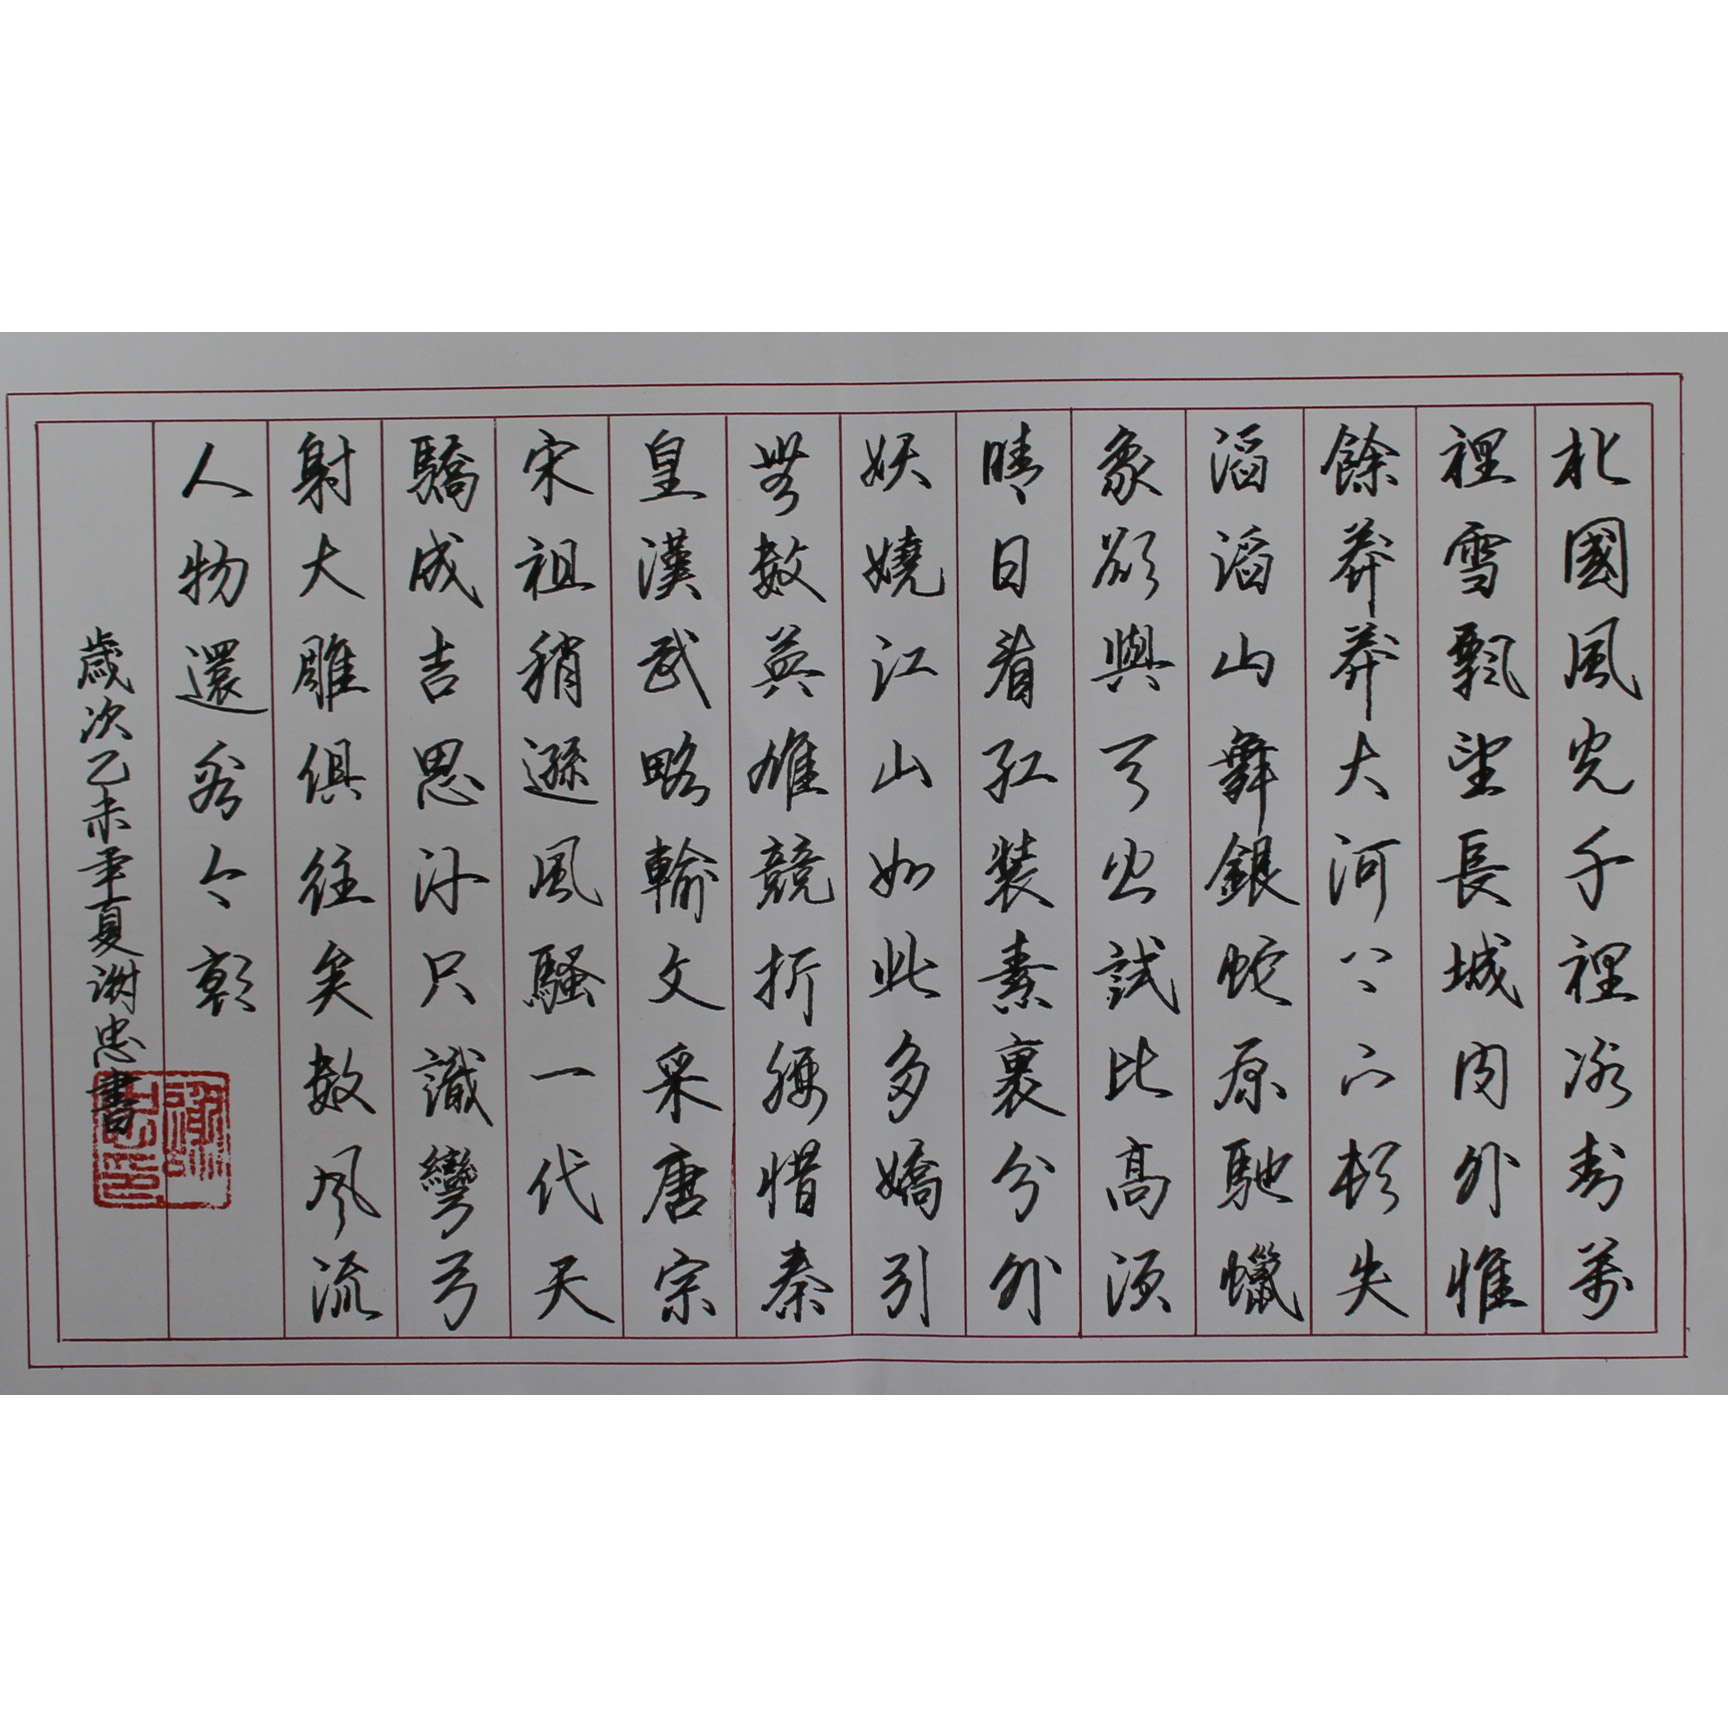 北國風光千裡冰封萬
裡雪飄望長城內外惟
餘莽莽大河上下頓失
滔滔山舞銀蛇原馳蠟
象欲與天公試比高須
晴日看紅裝素裹分外
妖嬈江山如此多嬌引
無數英雄競折腰惜秦
皇漢武略輸文采唐宗
宋祖稍遜風騷一代天
驕成吉思汗只識彎弓
射大雕俱往矣數風流
人物還看今朝
歲次乙未年夏謝忠書
謝忠印